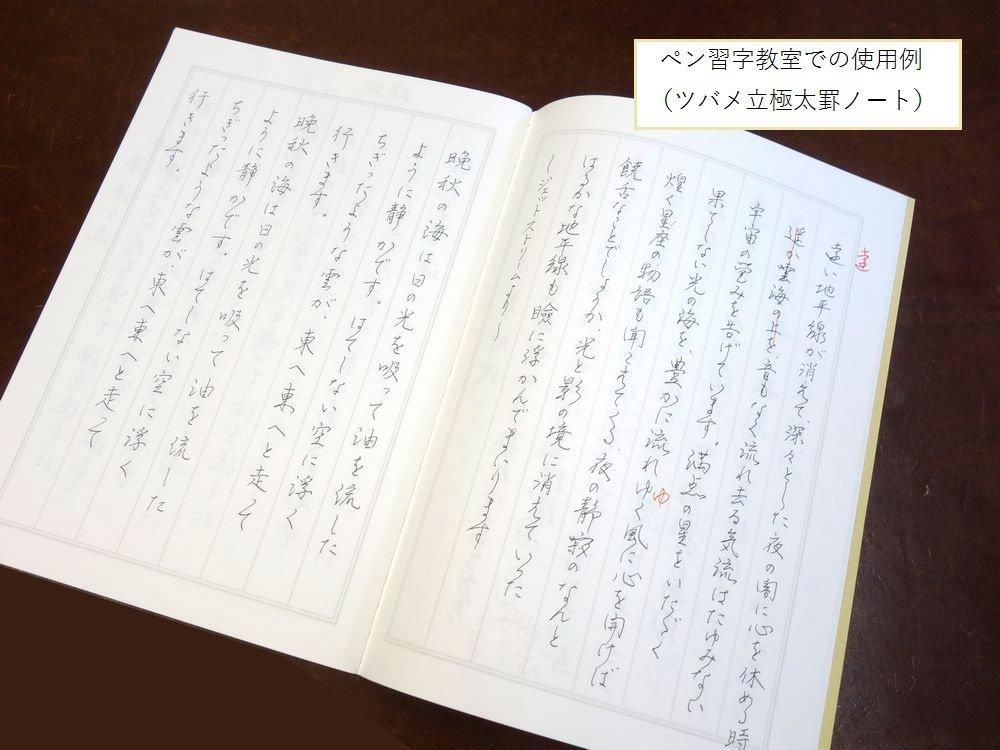 ペン習字教室での使用例
（ツバメ立極太罫ノート）
遠
遠い地平線が消えて、深々とした夜の闇に心を休める時
遥か雲海の上を、音もなく流れ去る気流はたゆみない
宇宙の営みを告げています。満点の星をいただく
果てしない光の海を、豊かに流れゆく風に心を開けば
ゆ
煌く星座の物語も聞こえてくる、夜の静寂のなんと
饒舌なことでしょうか、光と影の境に消えていった
はるかな地平線も瞼に浮かんでまいります
〜ジェットストリームより〜
晩秋の海は日の光を吸って油を流した
ように静かです。はてしない空に浮く
ちぎったような雲が、東へ東へと走って
行きます。
晩秋の海は日の光を吸って油を流した
ように静かです。はてしない空に浮く
ちぎったような雲が、東へ東へと走って
行きます。